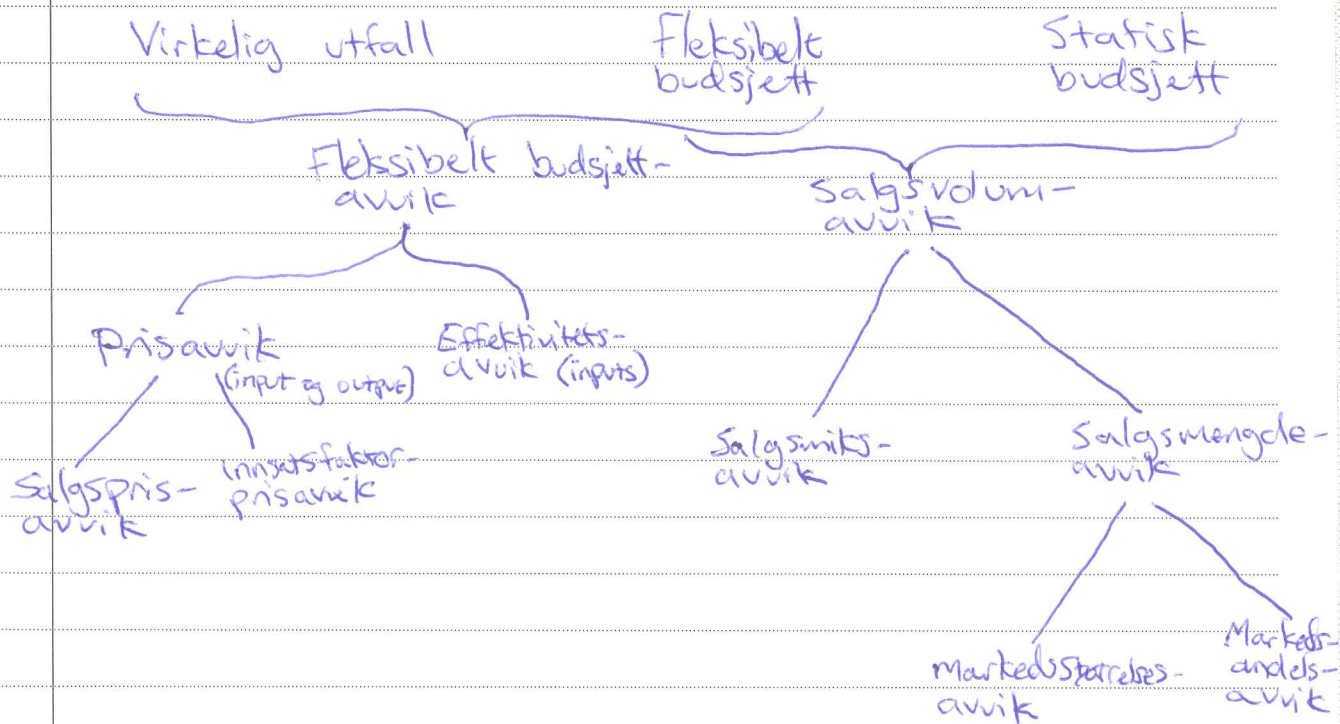 Virkelig utfall
Fleksibelt
budsjett
Statisk
budsjett
Flekssibelt budsjett-
avvik
Salgsvolum-
avvik
Prisavvik
(input og output)
Effektivitets-
avvik (inputs)
Salgspris-
avvik
innsatsfaktor-
prisavvik
Salgsmiks-
avvik
Salgsmengde-
avvik
markedsstørrelses-
avvik
Markeds-
andels-
avvik